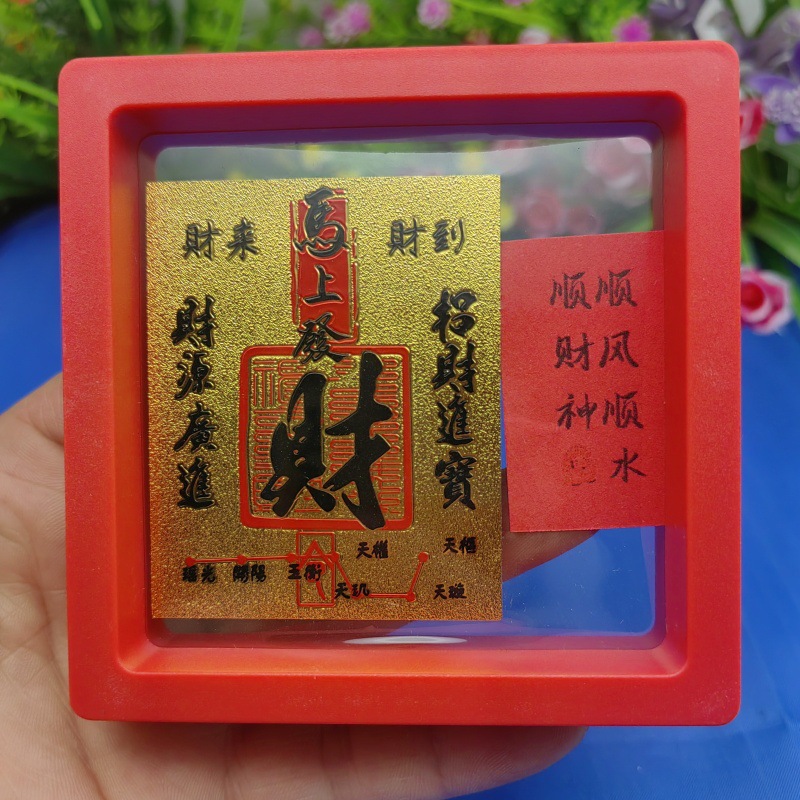 財来
馬上發財
財到
招財進寶
財源廣進
瑤光 開陽 玉衡 天權 天樞
天玑 天璇
顺风顺水
顺财神